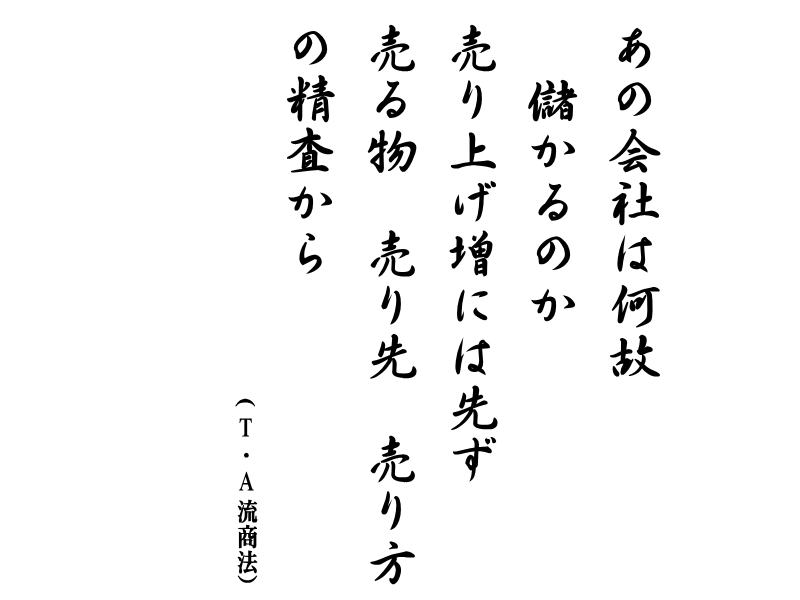 あの会社は何故
儲かるのか
売り上げ増には先ず
売る物　売り先　売り方
の精査から
(T・A流商法)